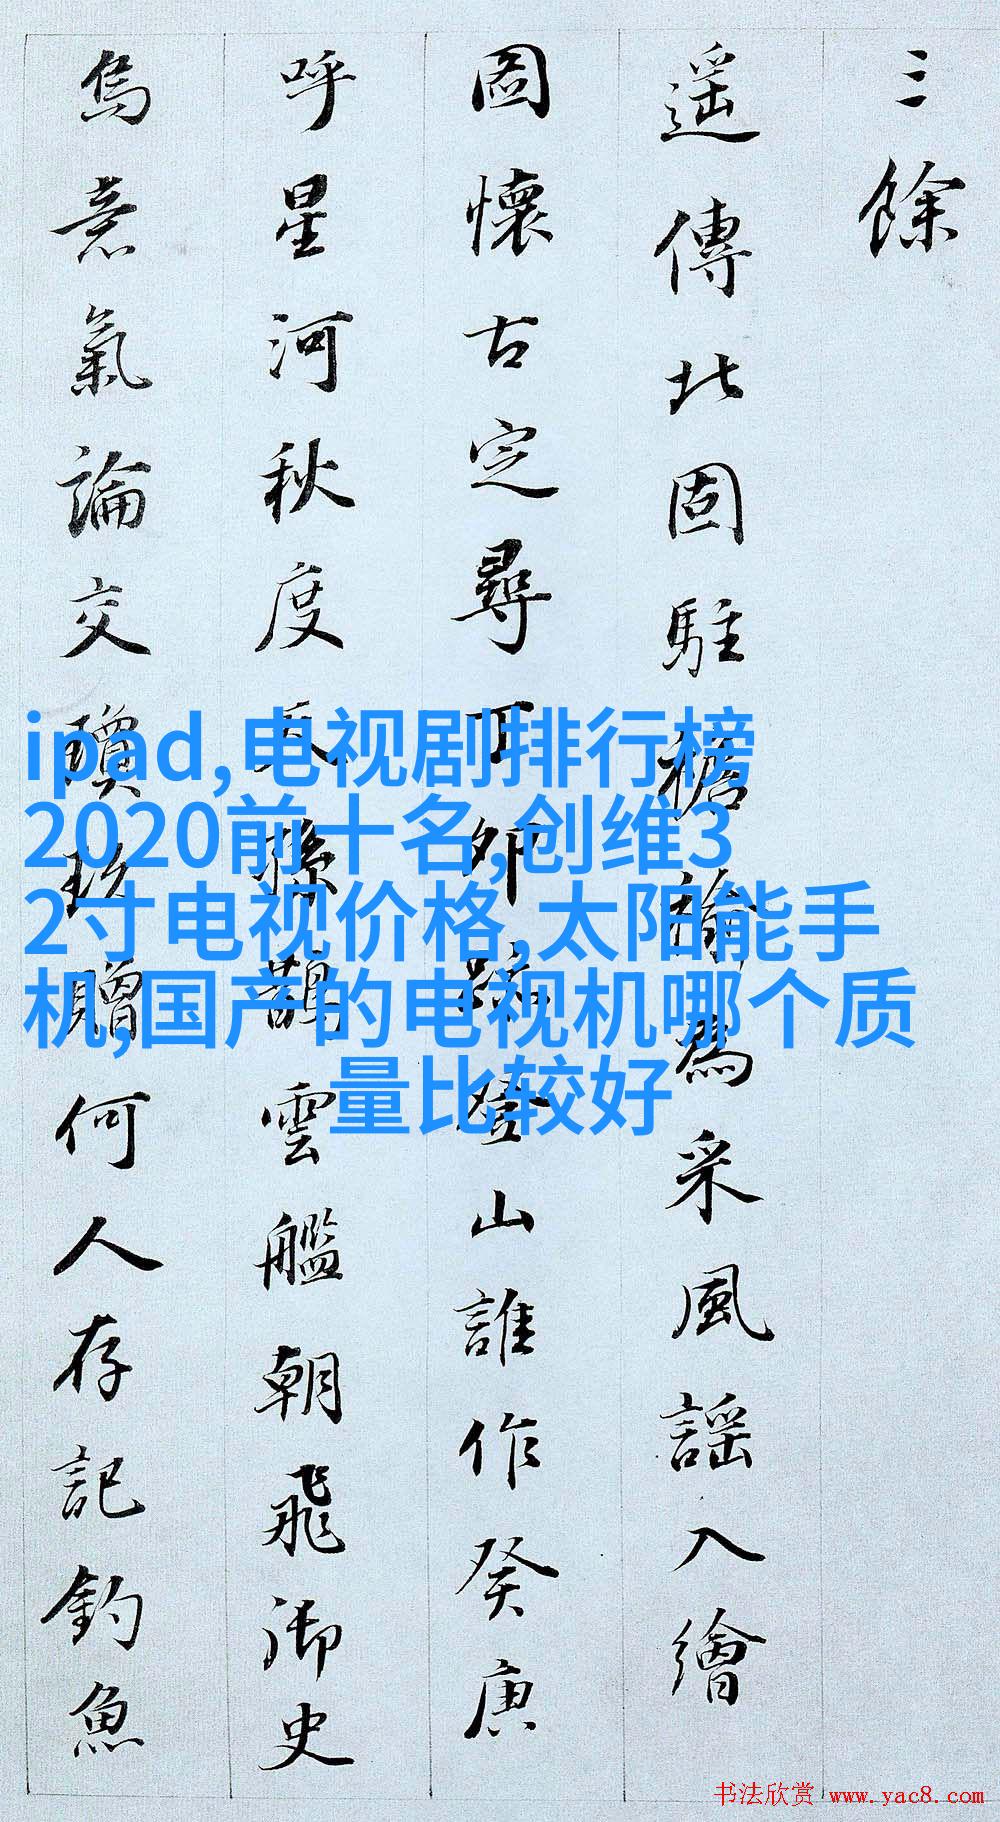 三餘
遥傳北固駐襜褕爲采風謡入繪
圖懷古定尋丁卯跡登山誰作癸庚
呼星河秋度天孫鵲雲艦朝飛御史
烏意氣論交瓊玖贈何人存記釣魚
ipad,电视剧排行榜
2020前十名,创维3
2寸电视价格,太阳能手
机,国产的电视机哪个质
量比较好
书法欣赏 www.yac8.com